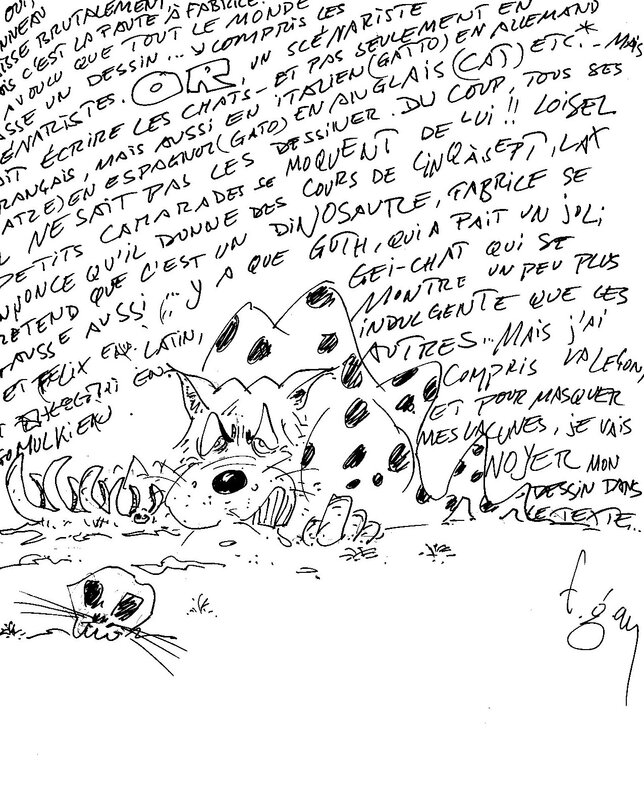 OUI,
NNEAU
ISSE BRUTALEMENT
IS C'EST LA FAUTE À FABRICE
A VOULU QUE TOUT LE MONDE
ASSE UN DESSIN... Y COMPRIS LES
ÉNARISTES. OR, UN SCÉNARISTE
AIT ÉCRIRE LES CHATS - ET PAS SEULEMENT EN
RANÇAIS, MAIS AUSSI EN ITALIEN (GATTO) EN ALLEMAND
ATZE) EN ESPAGNOL (GATO) EN ANGLAIS (CAT) ETC.* - MAIS
L NE SAIT PAS LES DESSINER. DU COUP, TOUS SES
PETITS CAMARADES SE MOQUENT DE LUI !! LOISEL
ANNONCE QU'IL DONNE DES COURS DE CINQÀSEPT, LAX
RÉTEND QUE C'EST UN DINOSAURE, FABRICE SE
AUSSE AUSSI (... Y A QUE GOTH, QUI A FAIT UN JOLI
GEI-CHAT QUI SE
MONTRE UN PEU PLUS
INDULGENTE QUE LES
AUTRES... MAIS J'AI
COMPRIS LA LEÇON,
ET POUR MASQUER
MES LACUNES, JE VAIS
NOYER MON
DESSIN DANS
LE TEXTE...
ET FELIX EN LATIN,
EN
OMULKIEN.